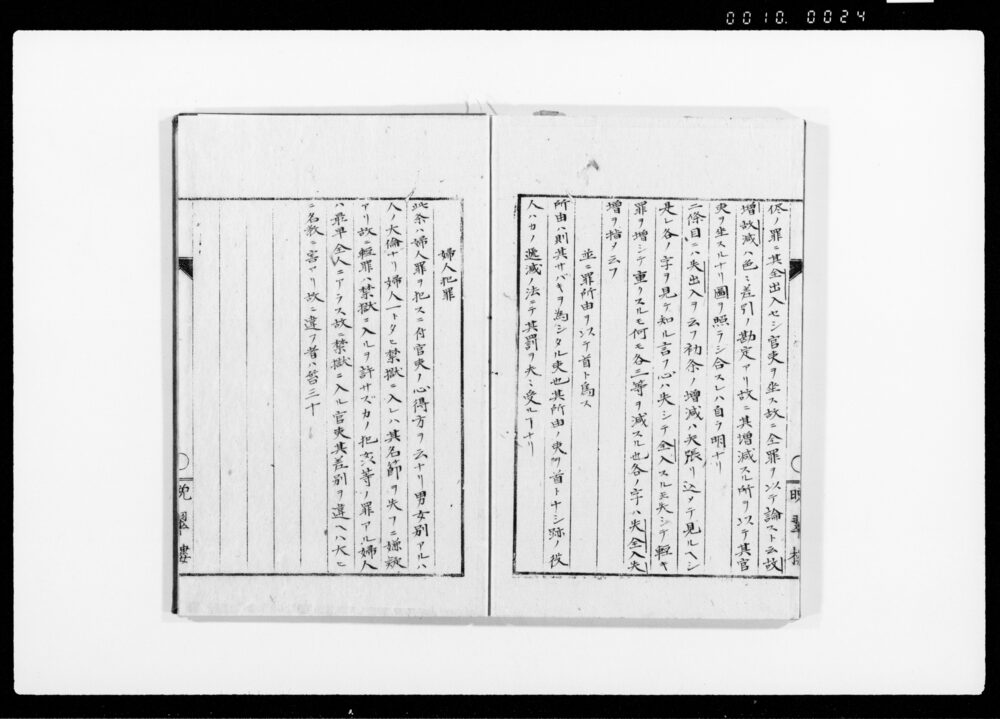 0010. 0024
依ノ罪ニ其全出入セシ官吏ヲ坐ス故ニ全罪ヲ以テ論スト云故
増故減ハ色〻差引ノ勘定アリ故ニ其増減スル所ヲ以テ其官
吏ヲ坐スルナリ圖ヲ照ラシ合スレハ自ラ明ナリ
二條目ニハ失出入ヲ云フ初条ノ増減ハ矢張リ込メテ見ルヘシ
是レ各ノ字ヲ見テ知ル言フ心ハ失シテ全入スルモ失シテ軽キ
罪ヲ増シテ重クスルモ何モ各三等ヲ減スル也各ノ字ハ失全入失
増ヲ指メ云フ
並ニ罪所由ヲ以テ首ト為ス
所由ハ則其サバキヲ為シタル吏也其所由ノ吏ヲ首トナシ跡ノ役
人ハカノ逓減ノ法ニテ其罰ヲ夫〻受ルヿナリ
晩翠樓
婦人犯罪
此条ハ婦人罪ヲ犯スニ付官吏ノ心得方ヲ云ナリ男女別アルハ
人ノ大倫ナリ婦人一トタヒ禁獄ニ入レハ其名節ヲ失フニ嫌疑
アリ故ニ軽罪ハ禁獄ニ入ルヲ許サズカノ犯姦等ノ罪アル婦人
ハ最早全人ニアラス故ニ禁獄ニ入ル官吏其差別ヲ違ヘハ大ヒ
ニ名教ニ害アリ故ニ違フ者ハ笞三十
晩翠樓